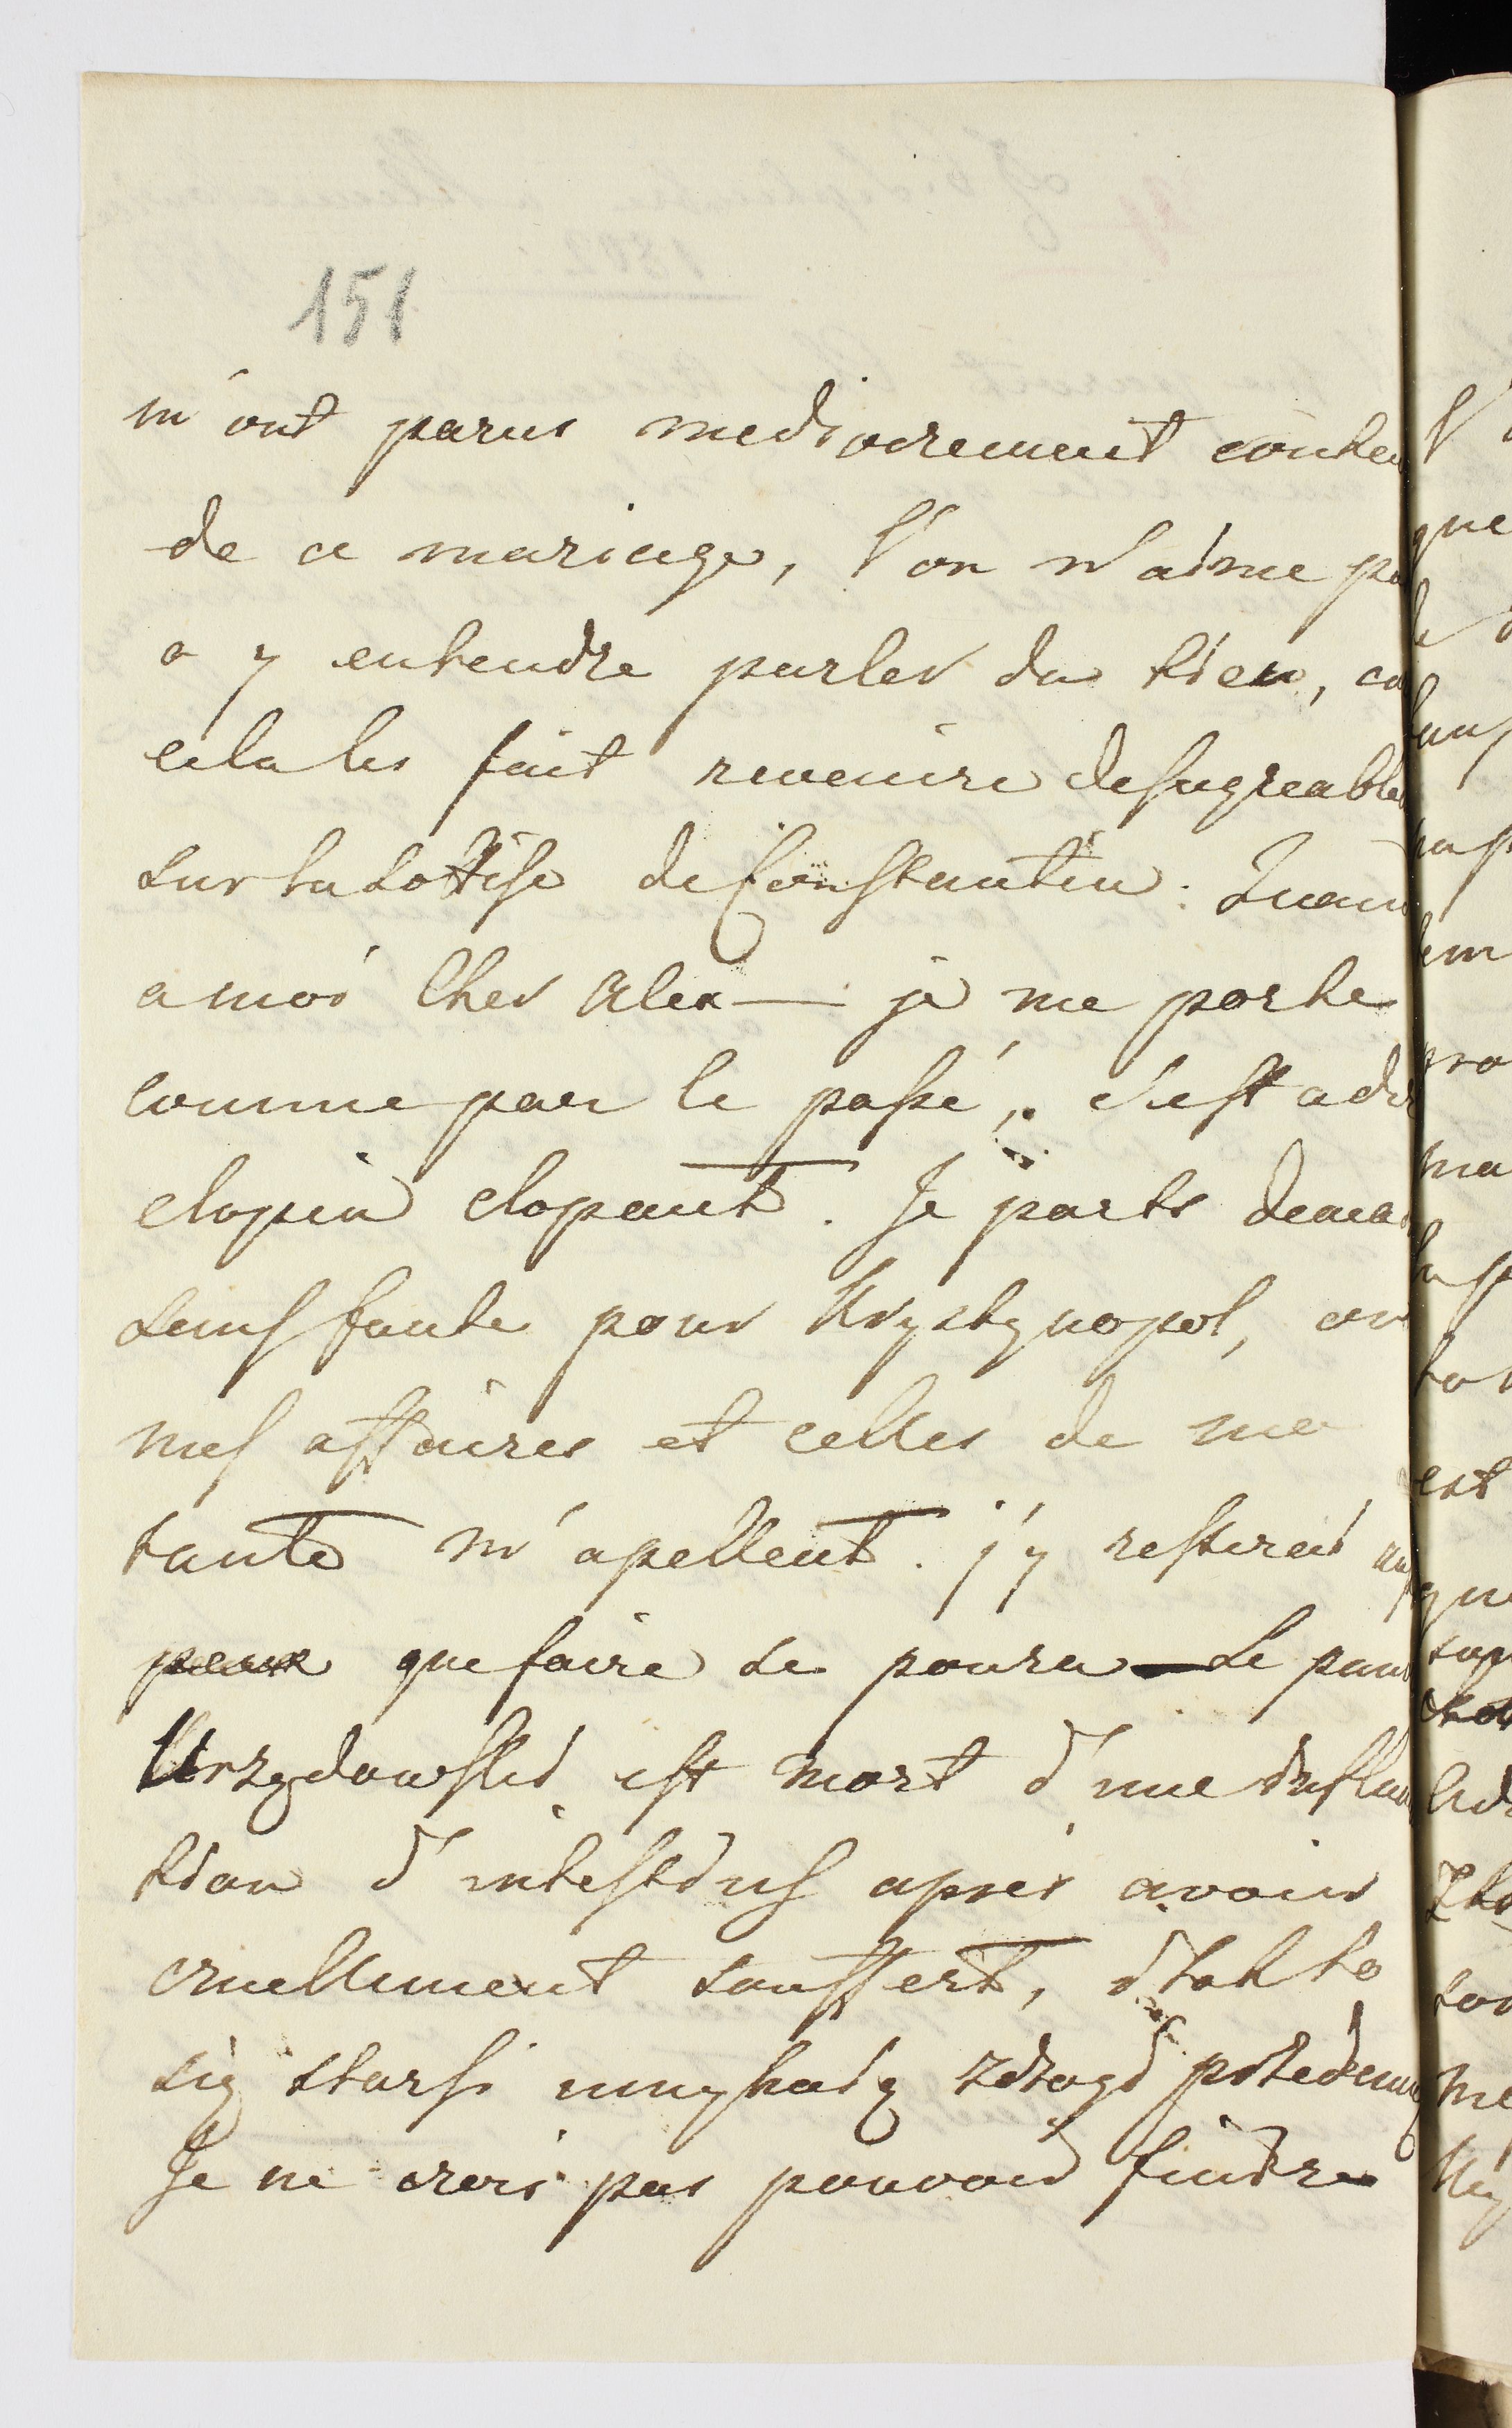 151
m'ont parus mediocrement conten
de ce mariage, l'on n'aime pa
a y entendre parler du tien, ca
cela les fait revenire desagreable
sur ta sottise de Constantin. Quan
a moi Cher Alex — je me porte
comme par le passé, c'est a dir
clopin clopant. Je parts demai
sens faute pour Krystynopol, ou
mes affaires et celles de ma
tante m'apellent. j'y resterai au
que faire se poura — Le pauv
Urzędowski est mort d'une infla
tion d'intestins apres avoir
cruellement souffert, i tak to
się starsi
Je ne crois pas pouvoir